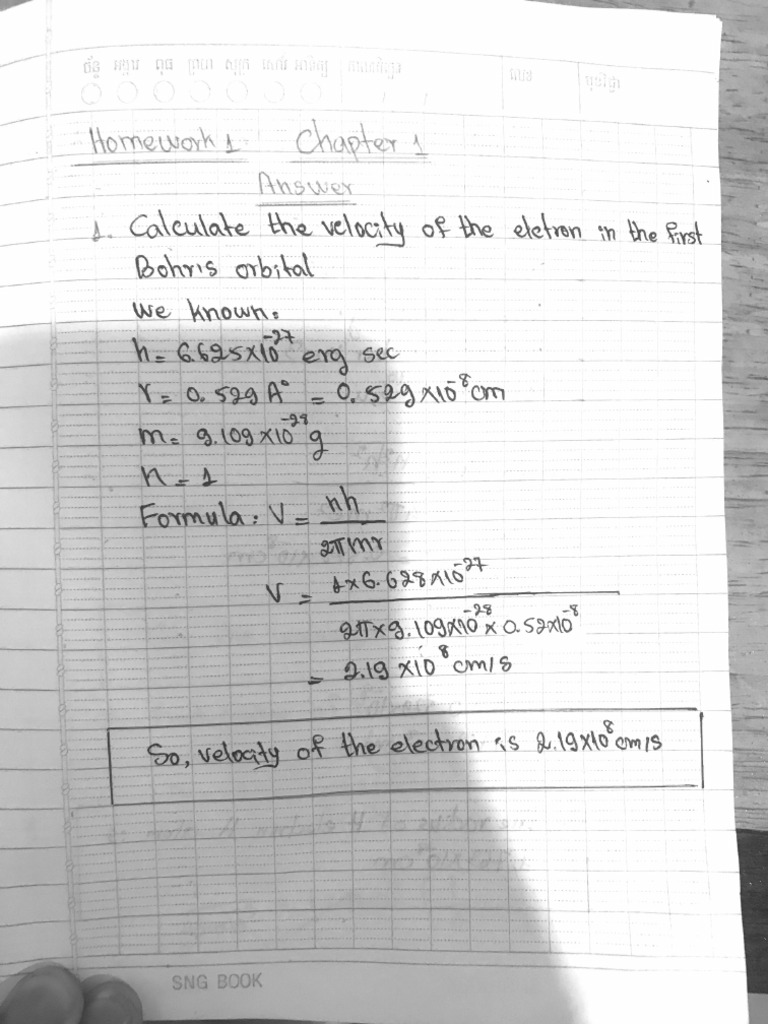 ច័ន្ទ អង្គារ ពុធ ព្រហ សុក្រ សៅរ៍ អាទិត្យ
Homework 1 Chapter 1
Answer
1. Calculate the velocity of the eletron in the first
Bohr's orbital
We known:
h = 6.625×10⁻²⁷ erg sec
r = 0.529 A° = 0.529×10⁻⁸ cm
m = 9.109×10⁻²⁸ g
n = 1
Formula: V = nh / 2πmr
V = 1×6.628×10⁻²⁷ / 2π×9.109×10⁻²⁸×0.52×10⁻⁸
= 2.19×10⁸ cm/s
So, velocity of the electron is 2.19×10⁸ cm/s
SNG BOOK